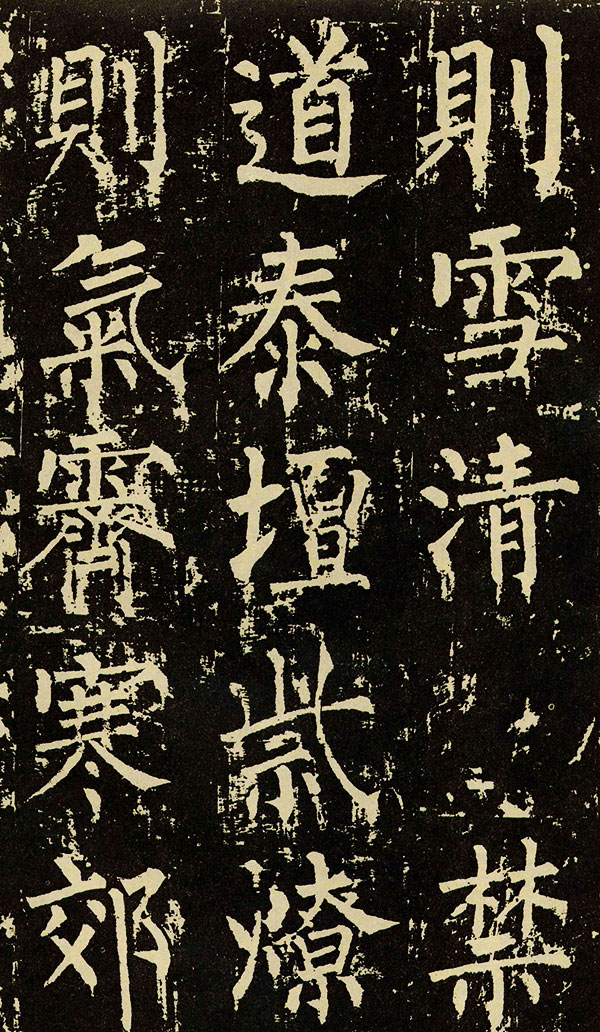 則雪清禁
道泰壇祡燎
則氣霽寒郊